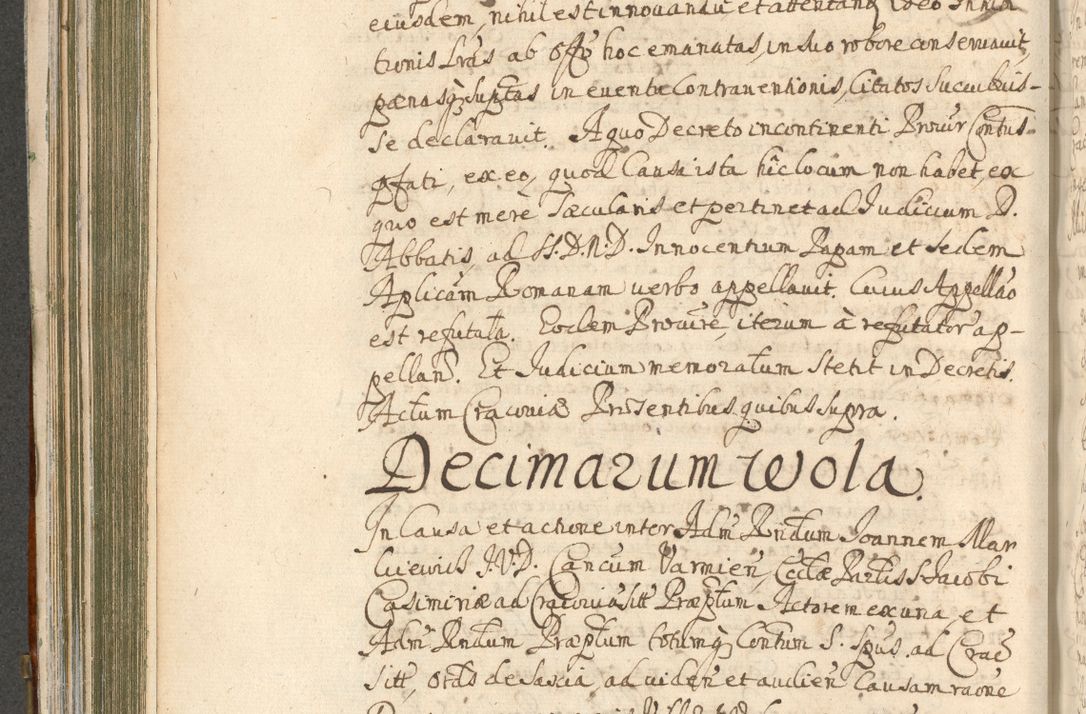 eiusdem, nihil est innouandũ et attentandũ ideo Inhibi
tionis Lrãs ab offo hoc emanatas, in suo robore conseruauit,
pænasq̃ suptas in euentu Contrauentionis, Citatos Succubuis-
se declarauit. A quo Decreto incontinenti Procur Conũs
pfati, ex eo, quod Causa ista hic locum non habet, ex
quo est merè Sæcularis et pertinet ad Iudicium D.
Abbatis, ad SS. D. N. D. Innocentium Papam et Sedem
Aplicãm Romanam uerbo appellauit. Cuius Appellão
est refutata. Eodem Procuire iterum à refutator ap-
pellan. Et Iudicium memoratum Stetit in Decretis.
Actum Cracouiæ Præsentibus quibus supra.
Decimarum Wola.
In Causa et actione inter Adm Rndum Ioannem Mar
Ciewicz I.V.D. Cancum Varmien, Ecclæ Partis S Iacobi
Casimiriæ ad Cracouiã sitt Præptum Actorem ex una, et
Adm Rndum Præptum totumq̃ Contum S. Spus ad Crac
sitt, Ordo de Saxia, ad uiden et audien Causam raõne